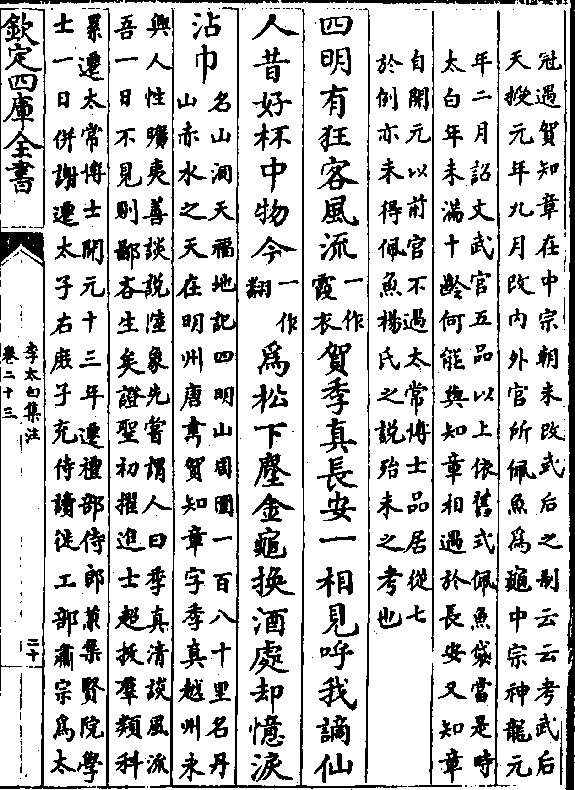 冠過賀知章在中宗朝未改武后之制云云考武后
天授元年九月改内外官所佩魚為龜中宗神龍元
年二月詔文武官五品以上依舊式佩魚袋當是時
太白年未滿十齡何能與知章相遇於長安又知章
自開元以前官不過太常博士品居從七
於例亦未得佩魚楊氏之説殆未之考也
四明有狂客風流一作霞衣賀季真長安一相見呼我謫仙
人昔好杯中物今一作翻為松下塵金龜換酒處却憶淚
沾巾
名山洞天福地記四明山周圍一百八十里名丹
山赤水之天在明州唐書賀知章字季真越州永
興人性曠夷善談説陸象先嘗謂人曰季真清談風流
吾一日不見則鄙吝生矣證聖初擢進士超拔羣類科
累遷太常博士開元十三年遷禮部侍郎兼集賢院學
士一日併謝遷太子右庶子充侍讀徙工部肅宗為太
欽定四庫全書
李太白集注
卷二十三
二十